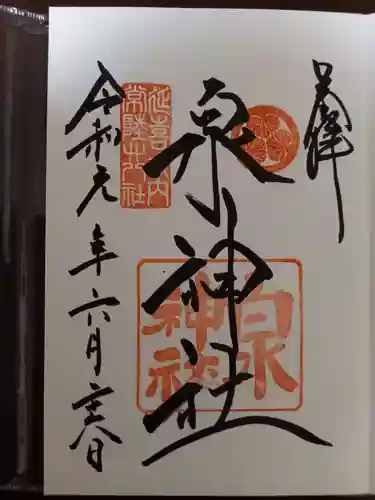 奉拝
泉神社
延喜式内
常陸廿八社
泉神社
令和元年六月二十八日